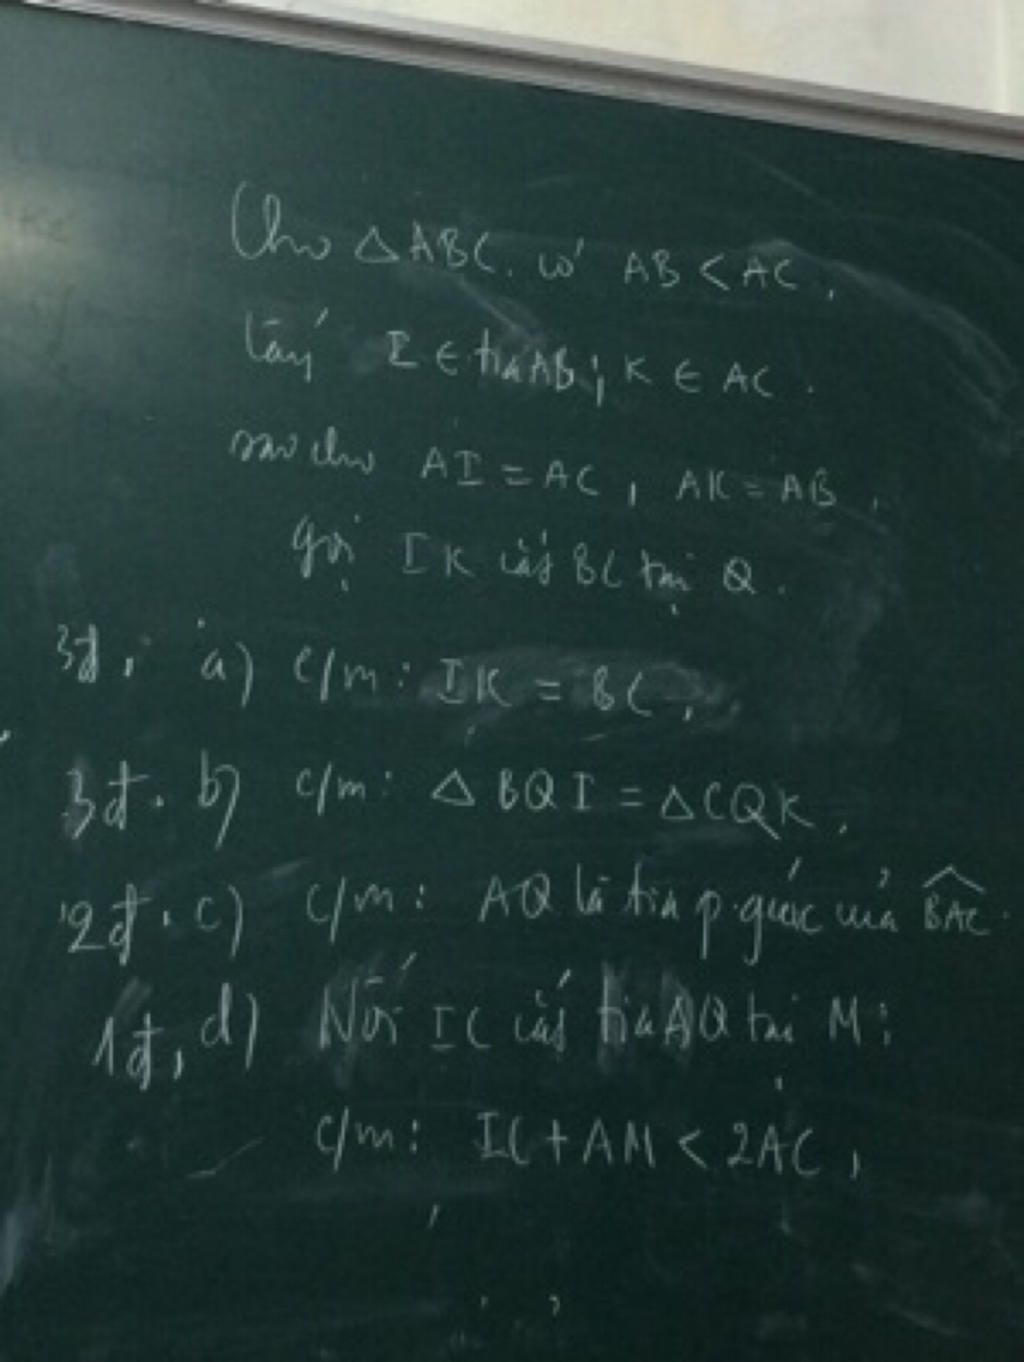 Cho △ABC. có AB < AC,
lấy I ∈ tia AB; K ∈ AC.
sao cho AI = AC, AK = AB,
gọi IK cắt BC tại Q.
3đ. a) c/m: IK = BC,
3đ. b) c/m: △BQI = △CQK.
2đ. c) c/m: AQ là tia p.giác của \widehat{BAC}.
1đ, d) Nối IC cắt tia AQ tại M;
c/m: IC + AM < 2AC,